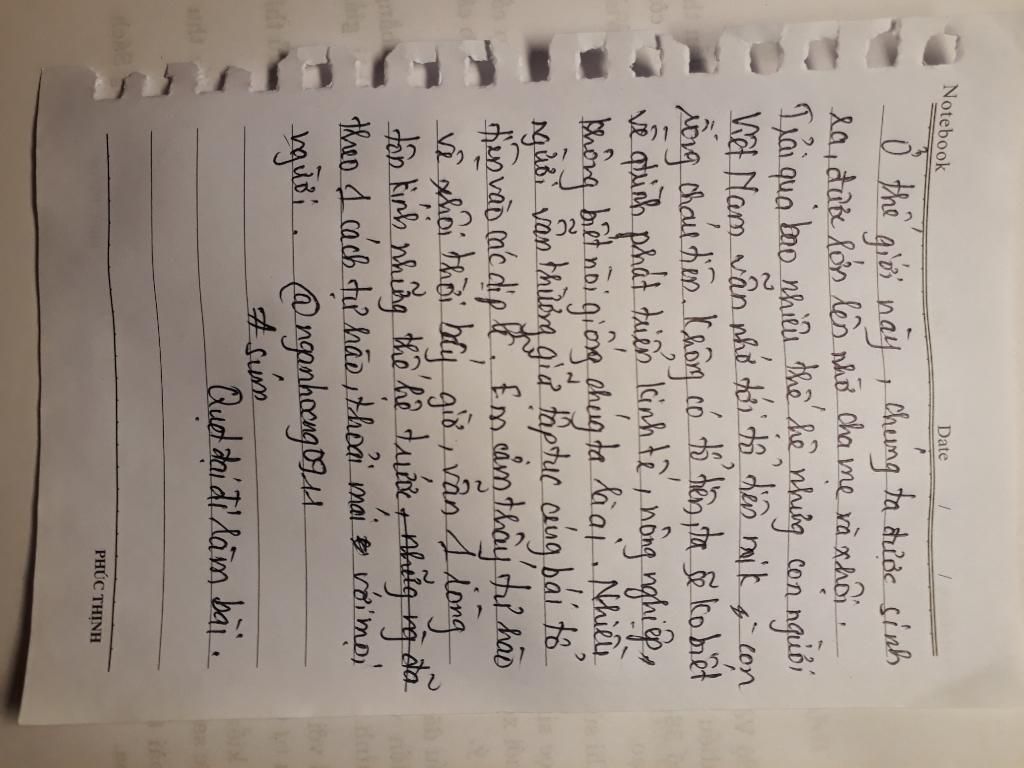 Notebook Date / /
Ở thế giới này, chúng ta được sinh
ra, được lớn lên nhờ cha mẹ và xhội.
Trải qua bao nhiêu thế hệ nhưng con người
Việt Nam vẫn nhớ tới tổ tiên mik là con
rồng cháu tiên. Không có tổ tiên, ta sẽ ko biết
về phát triển kinh tế, nông nghiệp,
không biết nòi giống chúng ta là ai. Nhiều
người vẫn thường giữ tập tục cúng bái tổ
tiên vào các dịp lễ. Em cảm thấy tự hào
về xhội thời bấy giờ, vẫn 1 lòng
tôn kính những thế hệ trước, những ng đã
theo 1 cách tự hào, thoải mái với mọi
người. @nganhoong0911
# súm
Quẹt đại đi làm bài.
PHÚC THỊNH